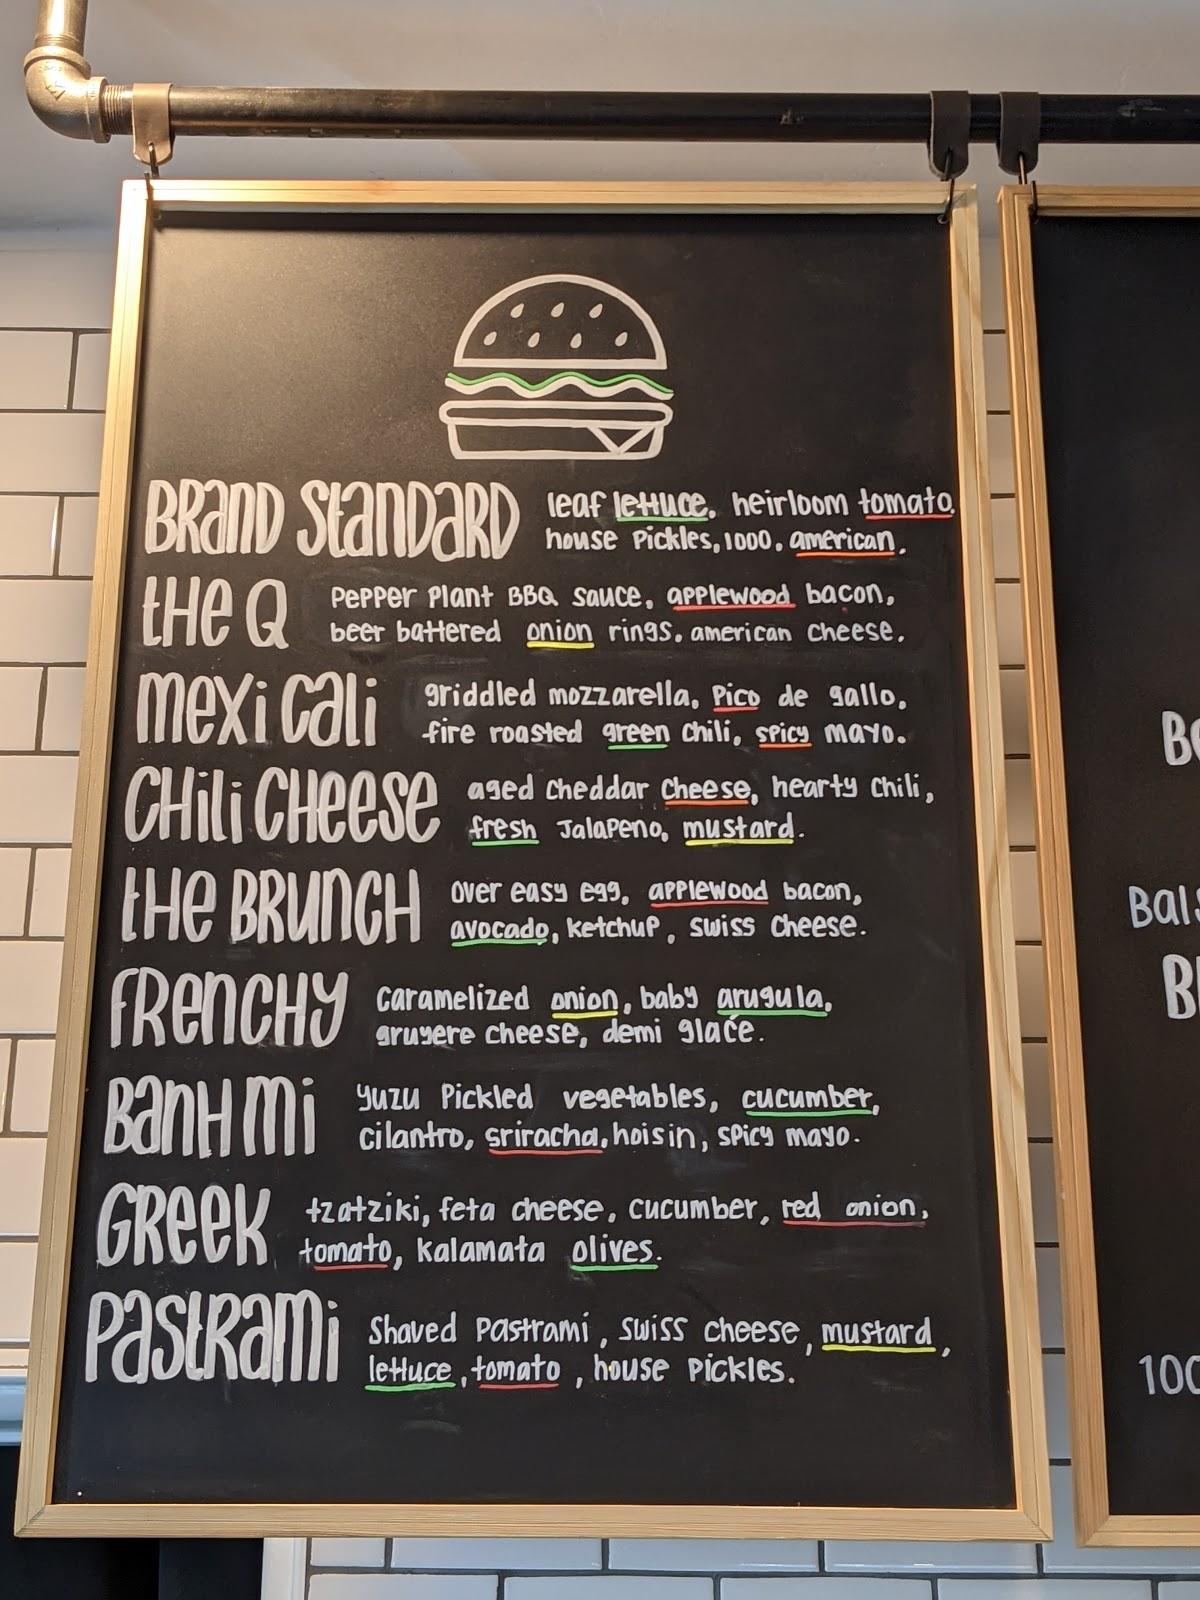 BRAND STANDARD leaf lettuce, heirloom tomato,
house pickles, 1000, american.
THE Q pepper plant BBQ sauce, applewood bacon,
beer battered onion rings, american cheese.
MEXI CALI griddled mozzarella, pico de gallo,
fire roasted green chili, spicy mayo.
CHILI CHEESE aged cheddar cheese, hearty chili,
fresh jalapeno, mustard.
THE BRUNCH over easy egg, applewood bacon,
avocado, ketchup, swiss cheese.
FRENCHY caramelized onion, baby arugula,
gruyere cheese, demi glaće.
BANH MI yuzu pickled vegetables, cucumber,
cilantro, sriracha, hoisin, spicy mayo.
GREEK tzatziki, feta cheese, cucumber, red onion,
tomato, kalamata olives.
PASTRAMI shaved pastrami, swiss cheese, mustard,
lettuce, tomato, house pickles.